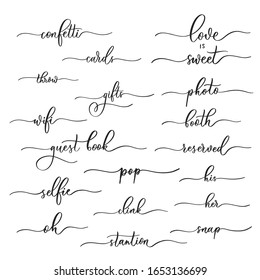 confetti
cards
throw
gifts
wifi
guest book
pop
selfie
clink
oh
stantion
love
is
sweet
photo
booth
reserved
his
her
snap
shutterstock.com · 1653136699